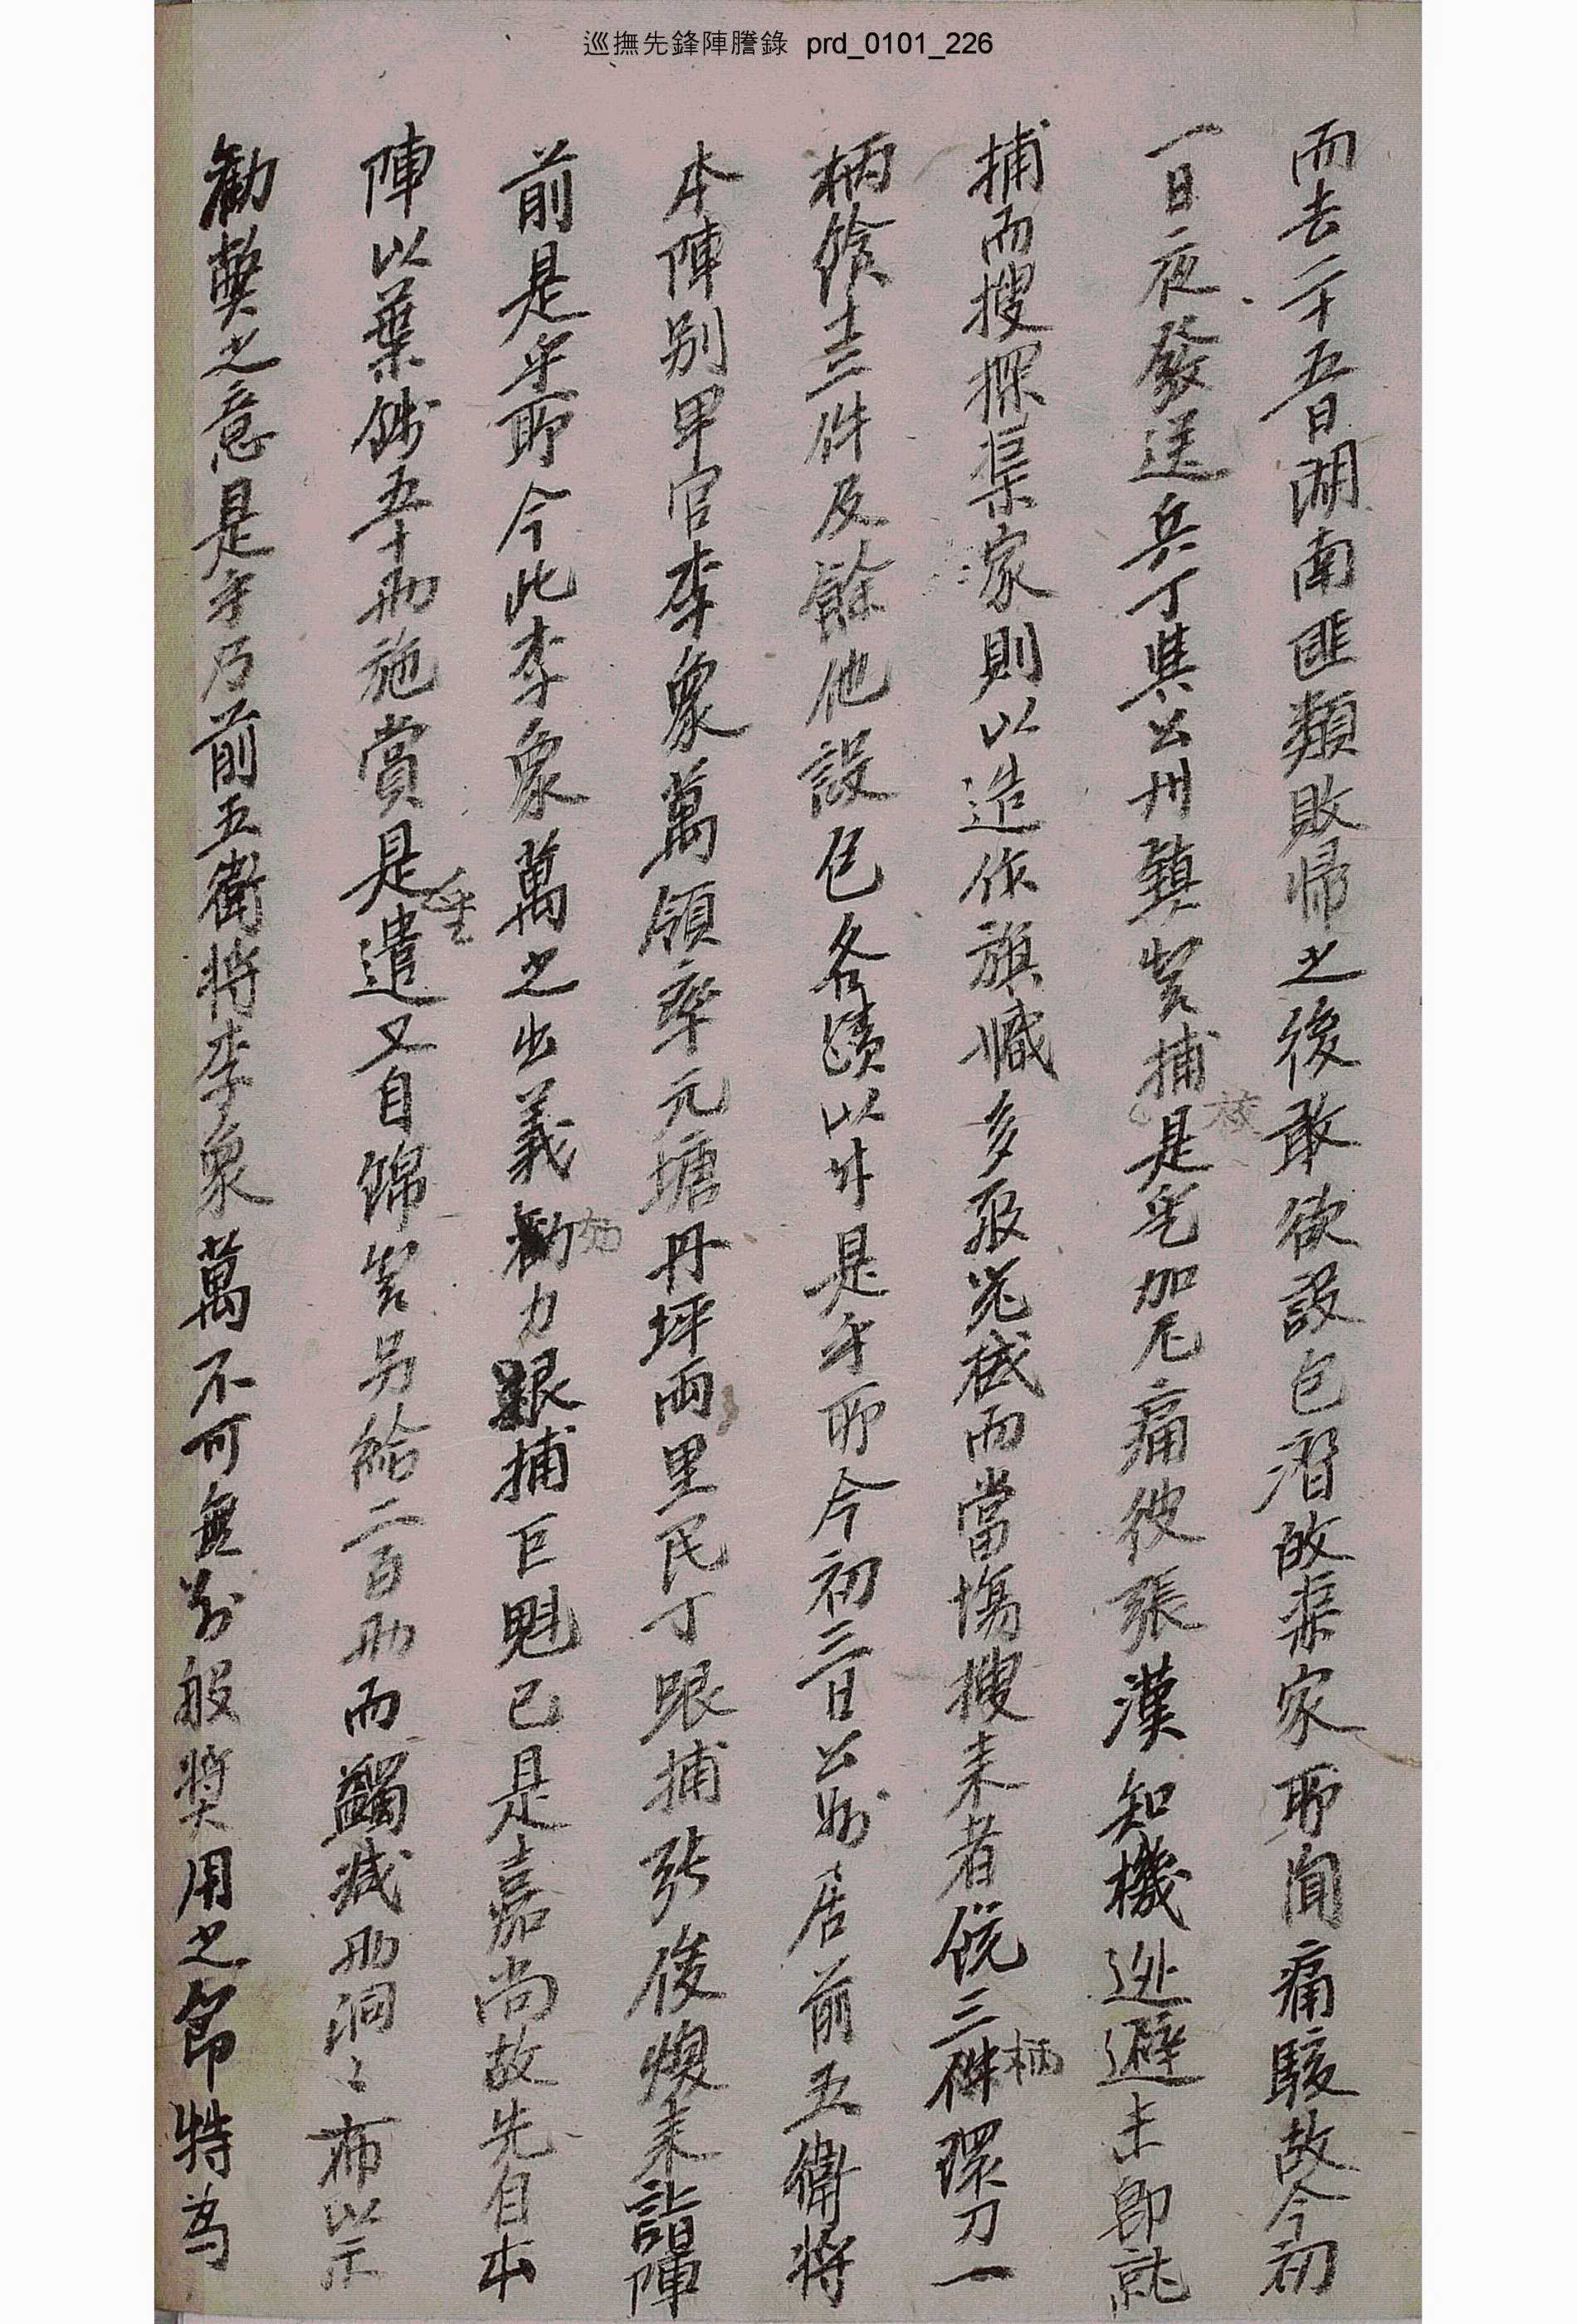 巡撫先鋒陣謄錄 prd_0101_226
而去二十五日湖南匪類敗歸之後敢欲設包潛故渠家耶聞痛駭故今初
一日夜發送兵丁與公州鎭營捕校是乎加尼痛彼張漢知機逃避未卽就
捕而搜探渠家則以造作旗幟多取兇械而當場搜来者銃三柄環刀一
柄餘三件及餘他設包各蹟以外是乎所今初三日公州居前五衛將
本陣別甲官李象萬領率元塘丹坪兩里民丁跟捕張俊煥来詣陣
前是乎所今此李象萬之出義効力跟捕巨魁已是嘉尚故先自本
陣以葉錢五十兩施賞是遣又自錦營另給二百兩而蠲减兩洞々布以示
勸奬之意是乎乃前五衛將李象萬不可無別般奬用之節特爲